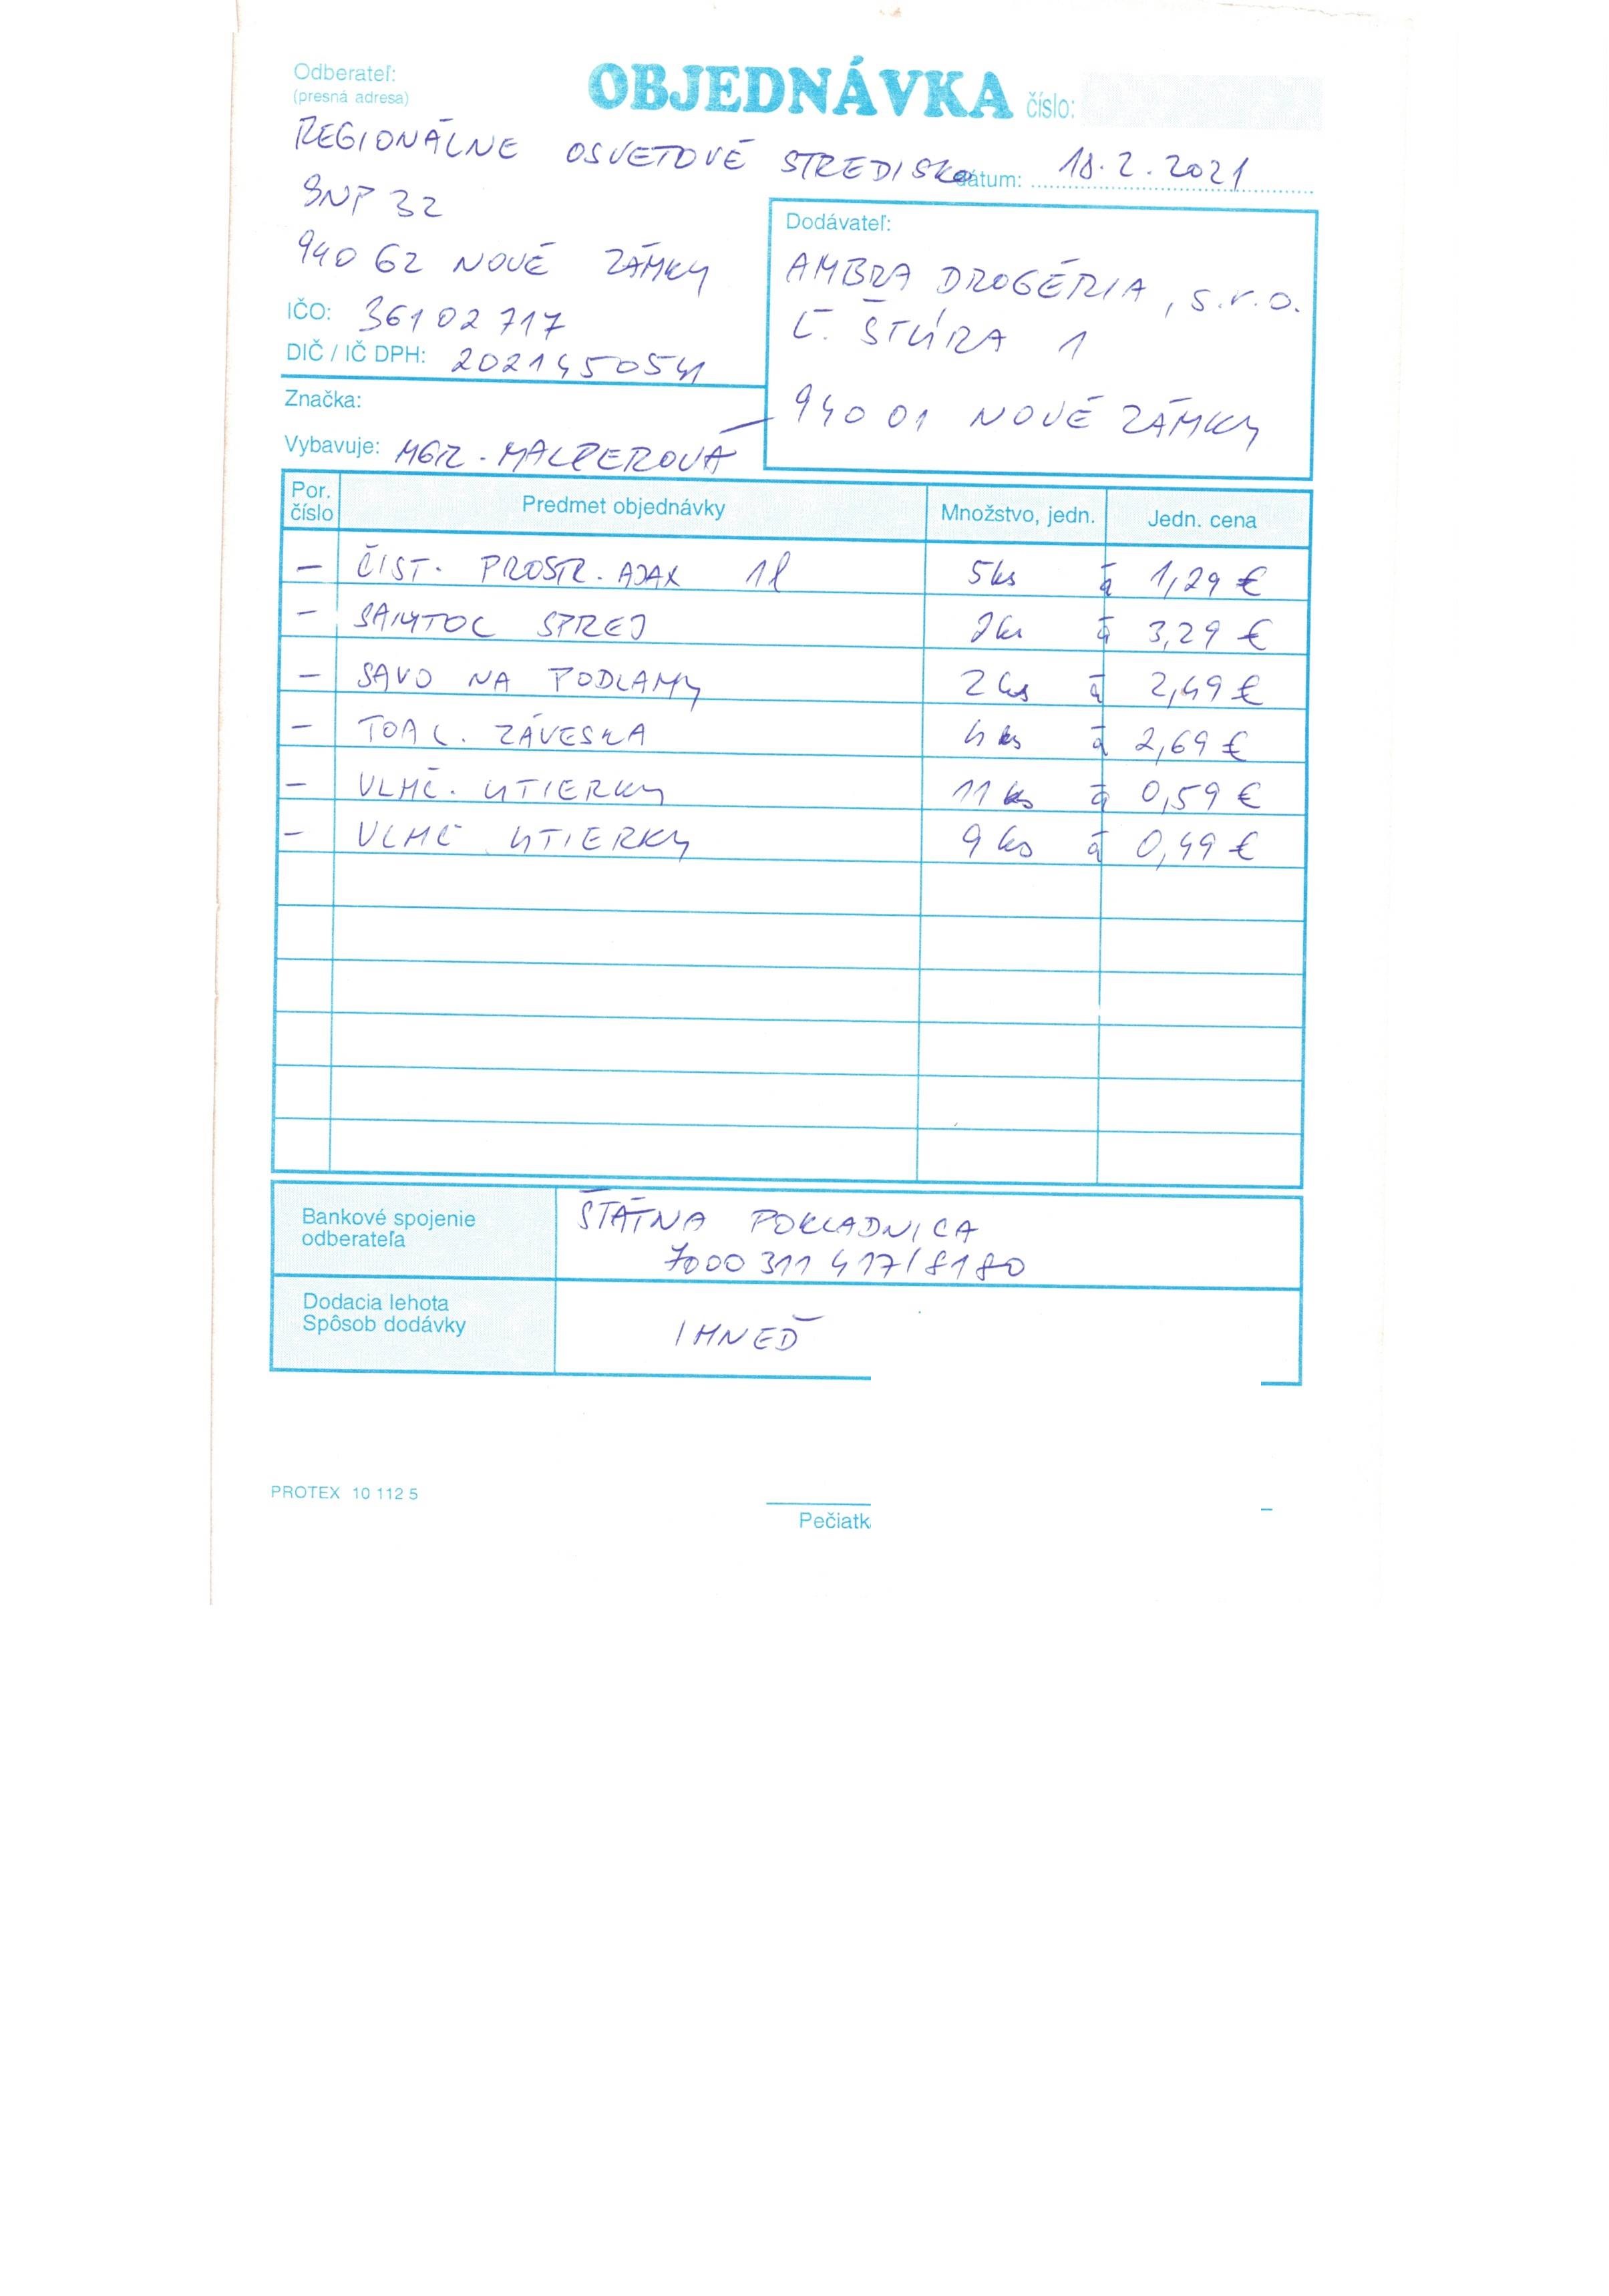 Odberateľ:
(presná adresa)
OBJEDNÁVKA číslo:
REGIONÁLNE OSVETOVÉ STREDISKO
dátum: 18.2.2021
SNP 32
940 62 NOVÉ ZÁMKY
IČO: 36102717
DIČ / IČ DPH: 2021450541
Značka:
Vybavuje: MGR. MALPEROVÁ
Dodávateľ:
AMBRA DROGÉRIA, s.r.o.
Ľ. ŠTÚRA 1
940 01 NOVÉ ZÁMKY
Por. číslo Predmet objednávky Množstvo, jedn. Jedn. cena
– ČIST. PROSTR. AJAX 1l 5ks á 1,29 €
– SANYTOL SPREJ ks á 3,29 €
– SAVO NA PODLAHY 2 ks á 2,49 €
– TOAL. ZÁVESKA 4 ks á 2,69 €
– VLHČ. UTIERKY 11 ks á 0,59 €
– VLHČ UTIERKY 9 ks á 0,49 €
Bankové spojenie
odberateľa
ŠTÁTNA POKLADNICA
7000 311 417/8180
Dodacia lehota
Spôsob dodávky
IHNEĎ
PROTEX 10 112 5
Pečiatk